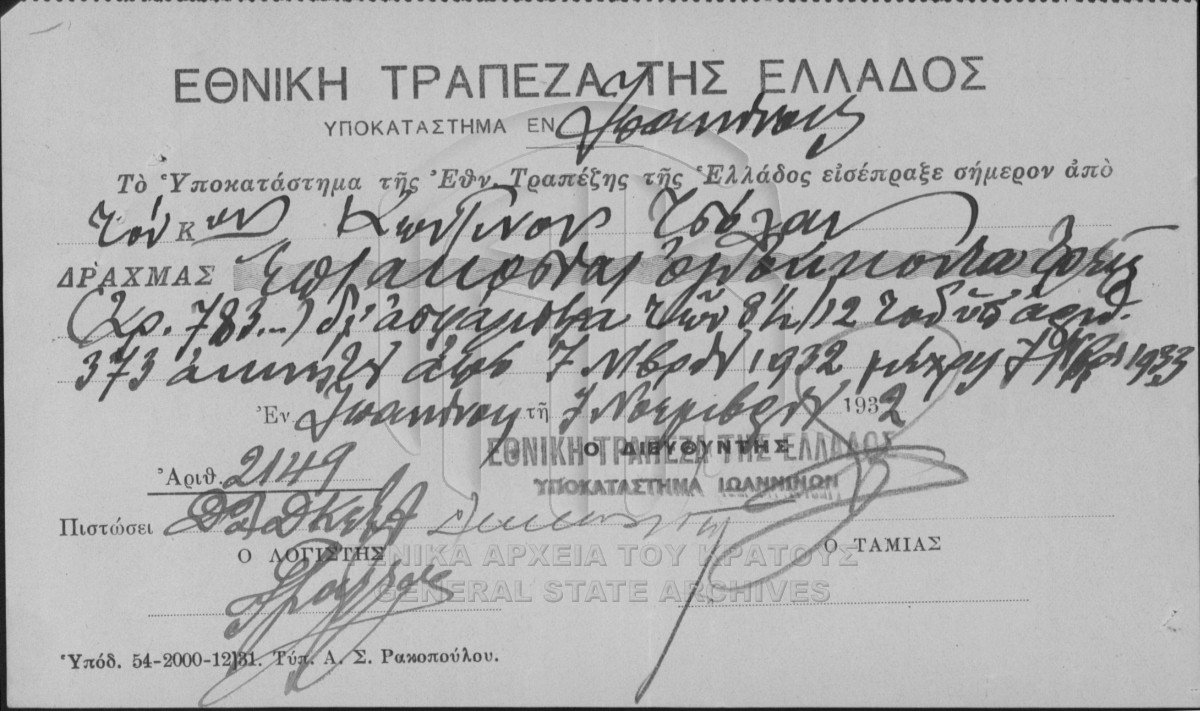 ΕΘΝΙΚΗ ΤΡΑΠΕΖΑ ΤΗΣ ΕΛΛΑΔΟΣ
ΥΠΟΚΑΤΑΣΤΗΜΑ ΕΝ Ἰωαννίνοις
Τὸ Ὑποκατάστημα τῆς Ἐθν. Τραπέζης τῆς Ἑλλάδος εἰσέπραξε σήμερον ἀπὸ
τὸν Κον Κων/τίνον
ΔΡΑΧΜΑΣ Ἑπτακοσίας ὀγδοήκοντα τρεῖς
(Δρ. 783...) δι' ἀσφάλιστρα τῶν 8½/12 τοῦ ὑπ' ἀριθ.
373 ἀκινήτου ἀπὸ 7 Νβρίου 1932 μέχρι 7 1933
Ἐν Ἰωαννίνοις τῇ 7 Νοεμβρίου 1932
Ο ΔΙΕΥΘΥΝΤΗΣ
ΕΘΝΙΚΗ ΤΡΑΠΕΖΑ ΤΗΣ ΕΛΛΑΔΟΣ
ΥΠΟΚΑΤΑΣΤΗΜΑ ΙΩΑΝΝΙΝΩΝ
Ἀριθ. 2149
Πιστώσει
Ο ΛΟΓΙΣΤΗΣ Ο ΤΑΜΙΑΣ
ΓΕΝΙΚΑ ΑΡΧΕΙΑ ΤΟΥ ΚΡΑΤΟΥΣ
GENERAL STATE ARCHIVES
Ὑπόδ. 54-2000-12]31. Τύπ. Α. Σ. Ρακοπούλου.